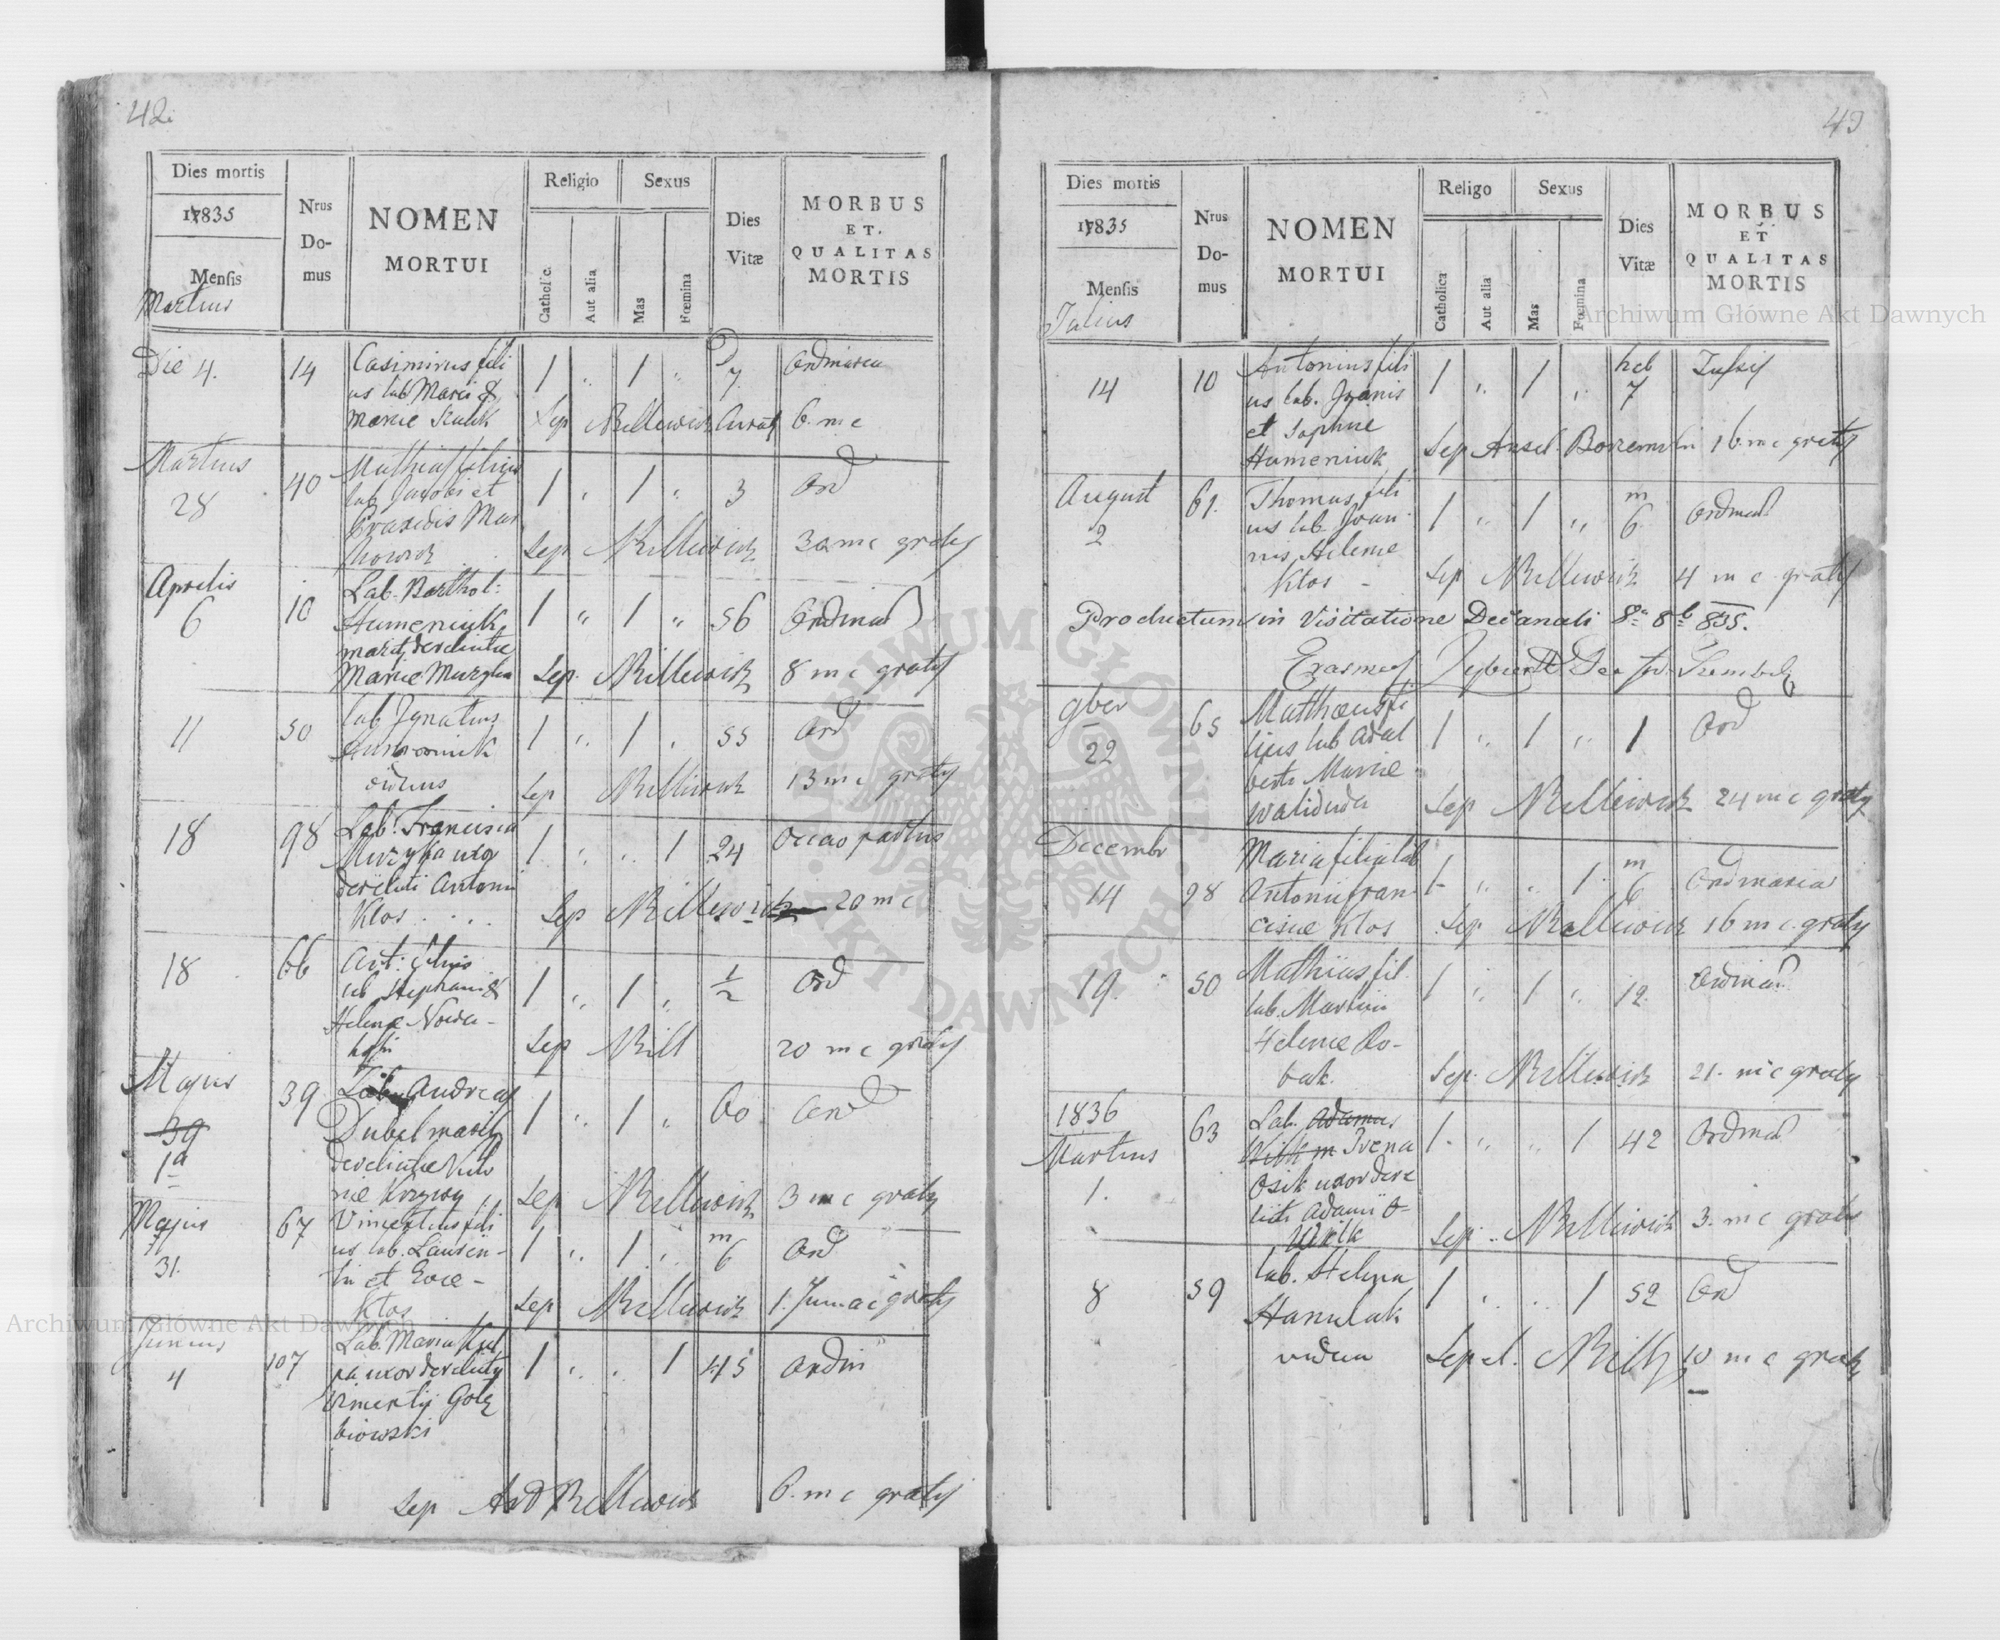 42.
Dies mortis
1835
Mensis
Martius
Nrus
Do-
mus
NOMEN
MORTUI
Religio
Catholic.
Aut alia
Sexus
Mas
Fœmina
Dies
Vitæ
MORBUS
ET.
QUALITAS
MORTIS
Die 4.
14
Casimirus fili
us lab Marci &
Marie
1 " 1 " 7
Ordinaria
Sep Billewicz Curat 6. m c
Martius
28
40
Mathias filius
lab Jacobi et
Praxedis Mar
1 " 1 " 3
Ord
Sep Billewicz 30 m c gratis
Aprilis
6
10
Lab. Barthol:
Humeniuk
marit derelictae
Marie Muzyka
1 " 1 " 56
Ordinar
Sep. Billewicz 8 m c gratis
11
50
lab Ignatius
viduus
1 " 1 " 55
Ord
Sep Billewicz 13 m c gratis
18
98
Lab. Francisca
Muzyka uxo
derelicti Antoni
Klos . . .
1 " " 1 24
Occao partus
Sep Billewicz 20 m c
18
66
Ant: filius
lab Stephani &
Helenae
1 " 1 " 1/2
Ord
Sep Bill 20 m c gratis
Majus
39
1a
39
Lab. Andreas
Dubel marit
derelictae Victo
riae
1 " 1 " 60
Ord
Sep Billewicz 3 m c gratis
Majus
31.
67
Vincentius fili
us lab. Lauren-
tii et Evae -
Klos
1 " 1 " m
6
Ord
Sep Billewicz 1. Junii c gratis
Junius
4
107
Lab. Maria
ra uxor derelicty
Vincentij Golę
biowski
1 " " 1 45
Ordin
Sep And Billewicz 6. m c gratis
43
Dies mortis
1835
Mensis
Julius
Nrus
Do-
mus
NOMEN
MORTUI
Religo
Catholica
Aut alia
Sexus
Mas
Fœmina
Dies
Vitæ
MORBUS
ET
QUALITAS
MORTIS
14
10
Antonius fili
us lab. Joanis
et Sophiae
Humeniuk
1 " 1 " heb
7
Tussis
Sep Ansel. 16 m c gratis
August
2
61.
Thomas fili
us lab. Joan
nis Helenae
Klos -
1 " 1 " m
6
Ordinar
Sep Billewicz 4 m c gratis
Productum in Visitatione Decanali 8a 8b 835.
Erasmus
9ber
22
65
Mathaeus fi
lius lab Adal
berti Mariae
Waliduda
1 " 1 " 1
Ord
Sep Billewicz 24 m c gratis
Decembr
14
98
Maria filia lab
Antonii Fran
ciscae Klos
1 " " 1 m
6
Ordinaria
Sep Billewicz 16 m c gratis
19.
50
Mathias fil.
lab. Martini
Helenae Ro-
bak.
1 " 1 " 12.
Ordinar
Sep. Billewicz 21. m c gratis
1836
Martius
1.
63
Lab. Adamus
Wilk m Irena
Osik uxor dere
licti Adami
Wilk
1 " " 1 42
Ordinar
Sep. Billewicz 3. m c gratis
8
59
lab. Helena
Hanulak
vidua
1 " " 1 52
Ord
Sepel. Bill 10 m c gratis
Archiwum Główne Akt Dawnych
Archiwum Główne Akt Dawnych
ARCHIWUM GŁÓWNE AKT DAWNYCH